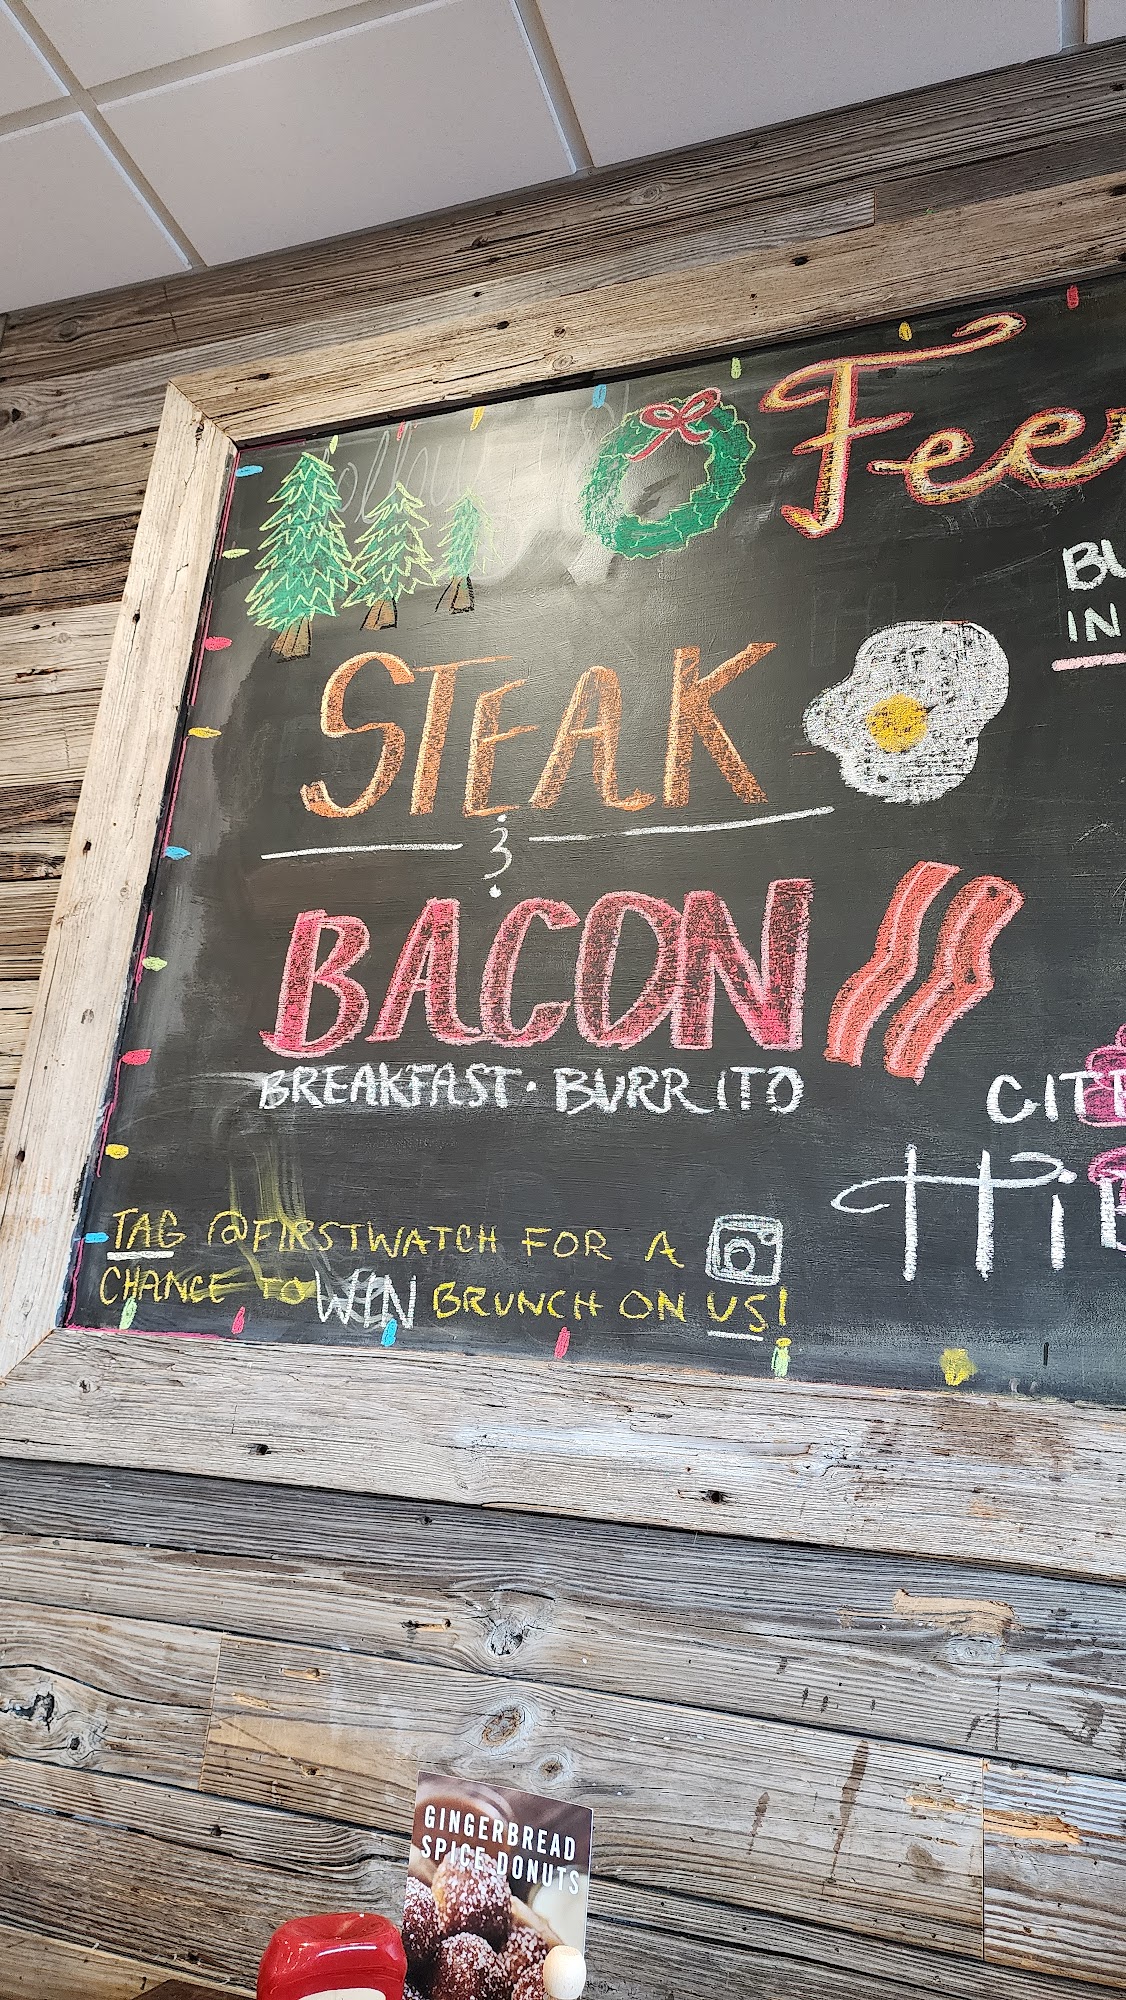 STEAK
&
BACON
BREAKFAST · BURRITO
TAG @FIRSTWATCH FOR A
CHANCE TO WIN BRUNCH ON US!
BU
IN
CIT
Hi
GINGERBREAD
SPICE DONUTS